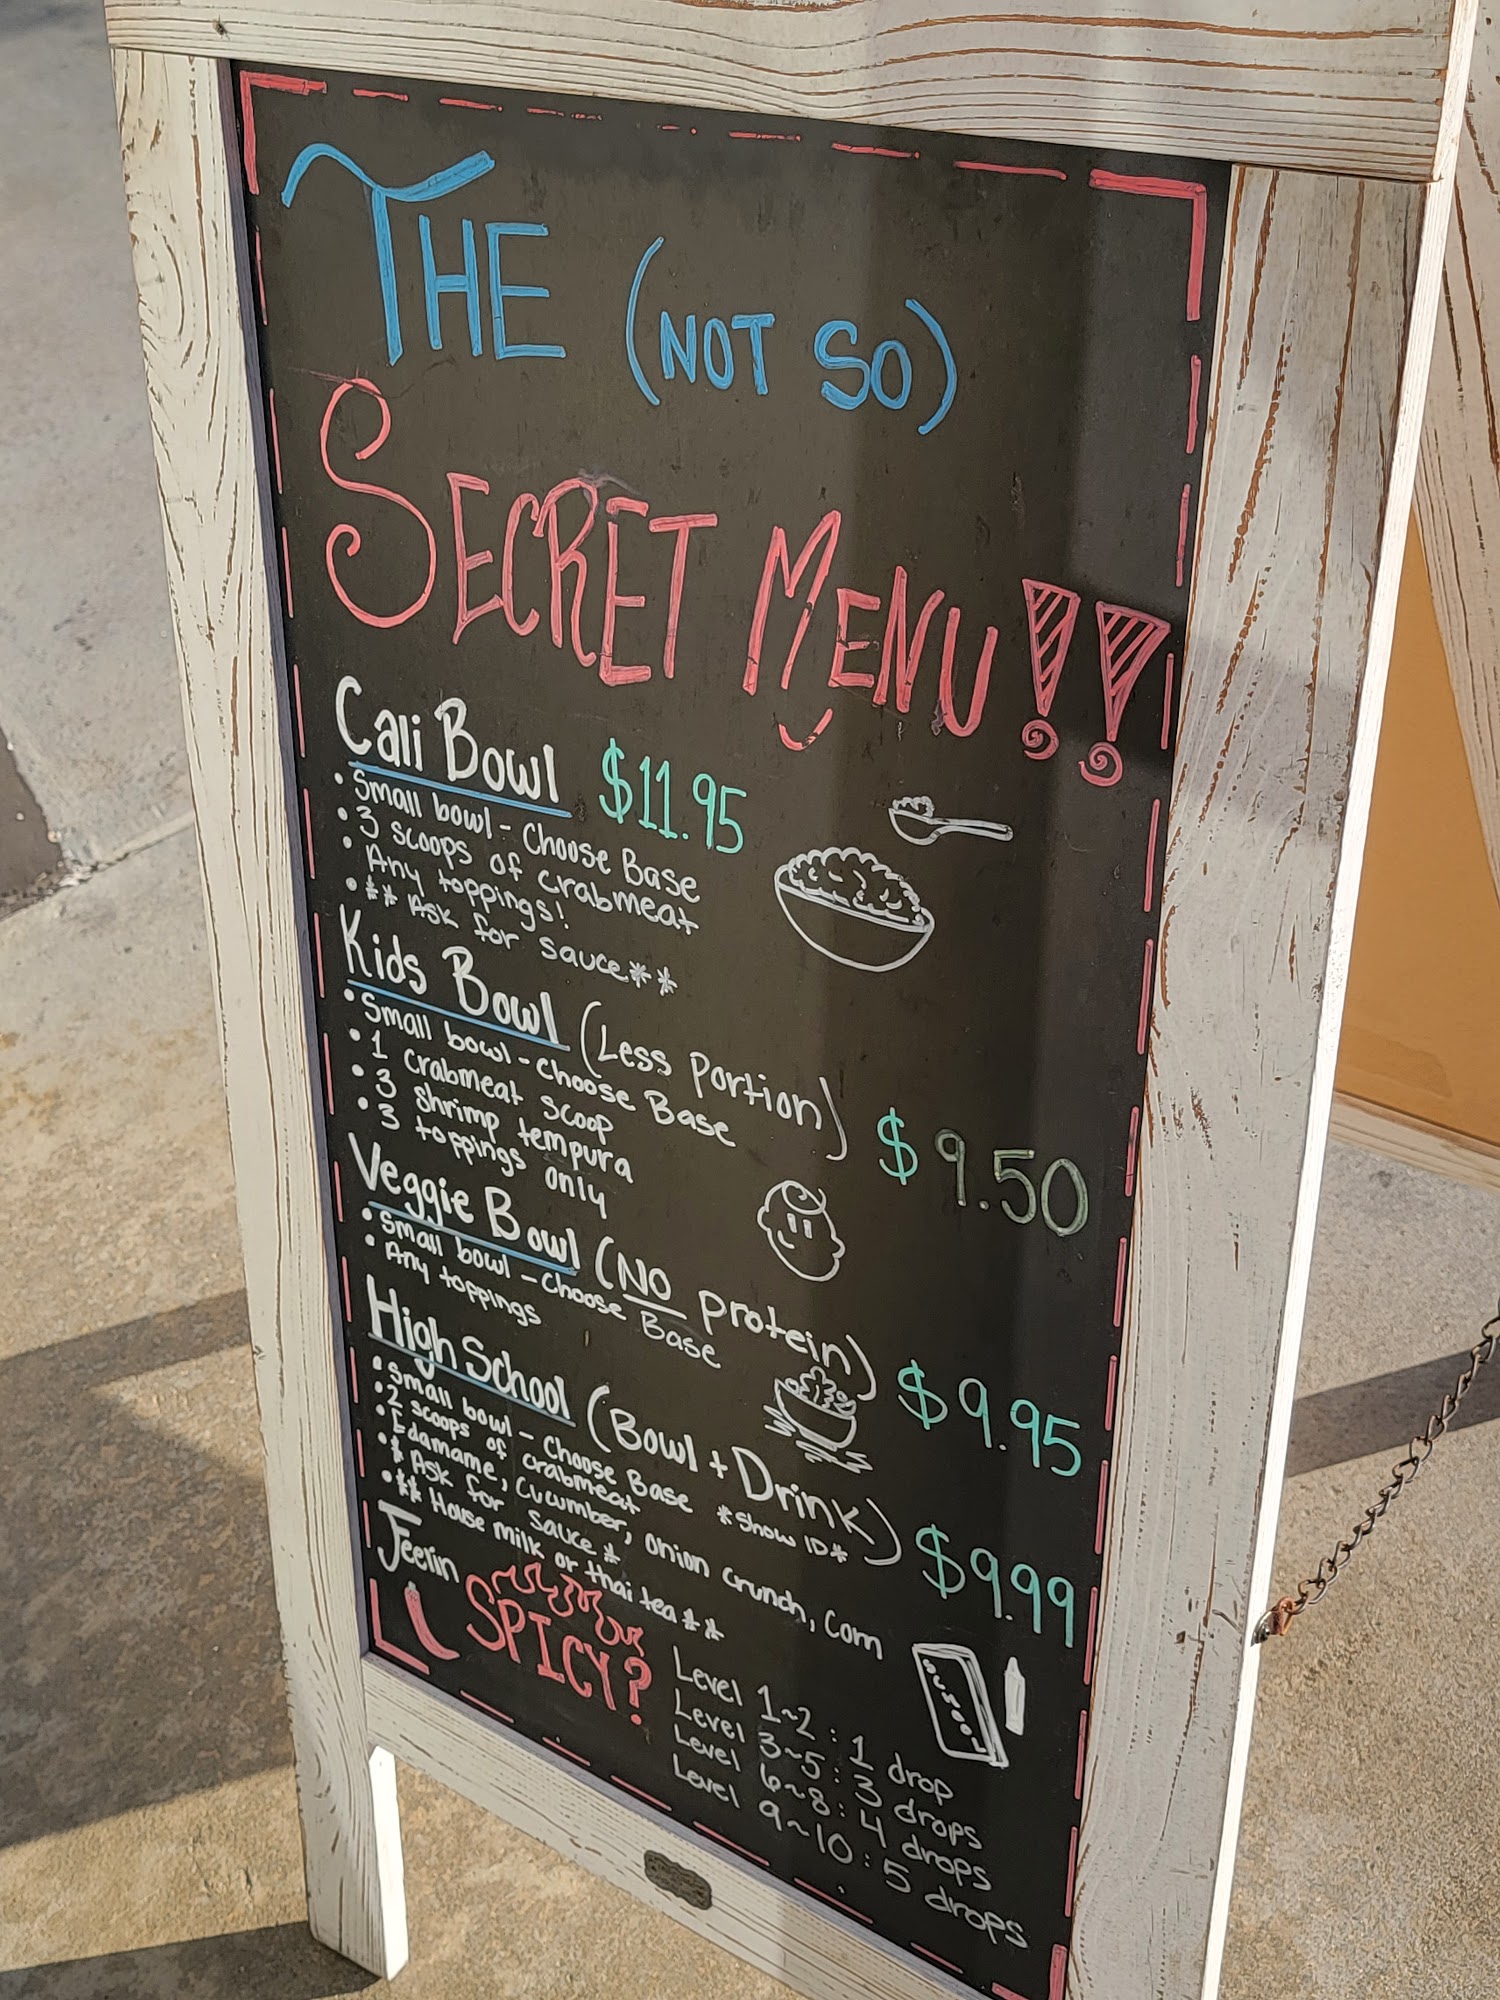 THE (NOT SO)
SECRET MENU!!
Cali Bowl $11.95
• Small bowl - Choose Base
• 3 scoops of crabmeat
• Any toppings!
• ** Ask for sauce**
Kids Bowl (Less portion) $9.50
• Small bowl - Choose Base
• 1 crabmeat scoop
• 3 shrimp tempura
• 3 toppings only
Veggie Bowl (NO protein) $9.95
• Small bowl - Choose Base
• Any toppings
High School (Bowl + Drink) $9.99
• Small bowl - Choose Base *Show ID*
• 2 scoops of crabmeat
• Edamame, Cucumber, onion crunch, Corn
• * Ask for sauce *
• ** House milk or thai tea **
Feelin SPICY?
Level 1~2 : 1 drop
Level 3~5 : 3 drops
Level 6~8 : 4 drops
Level 9~10 : 5 drops